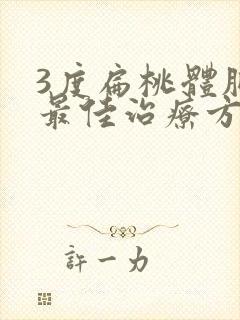 3度扁桃體
最佳治療方
許一力